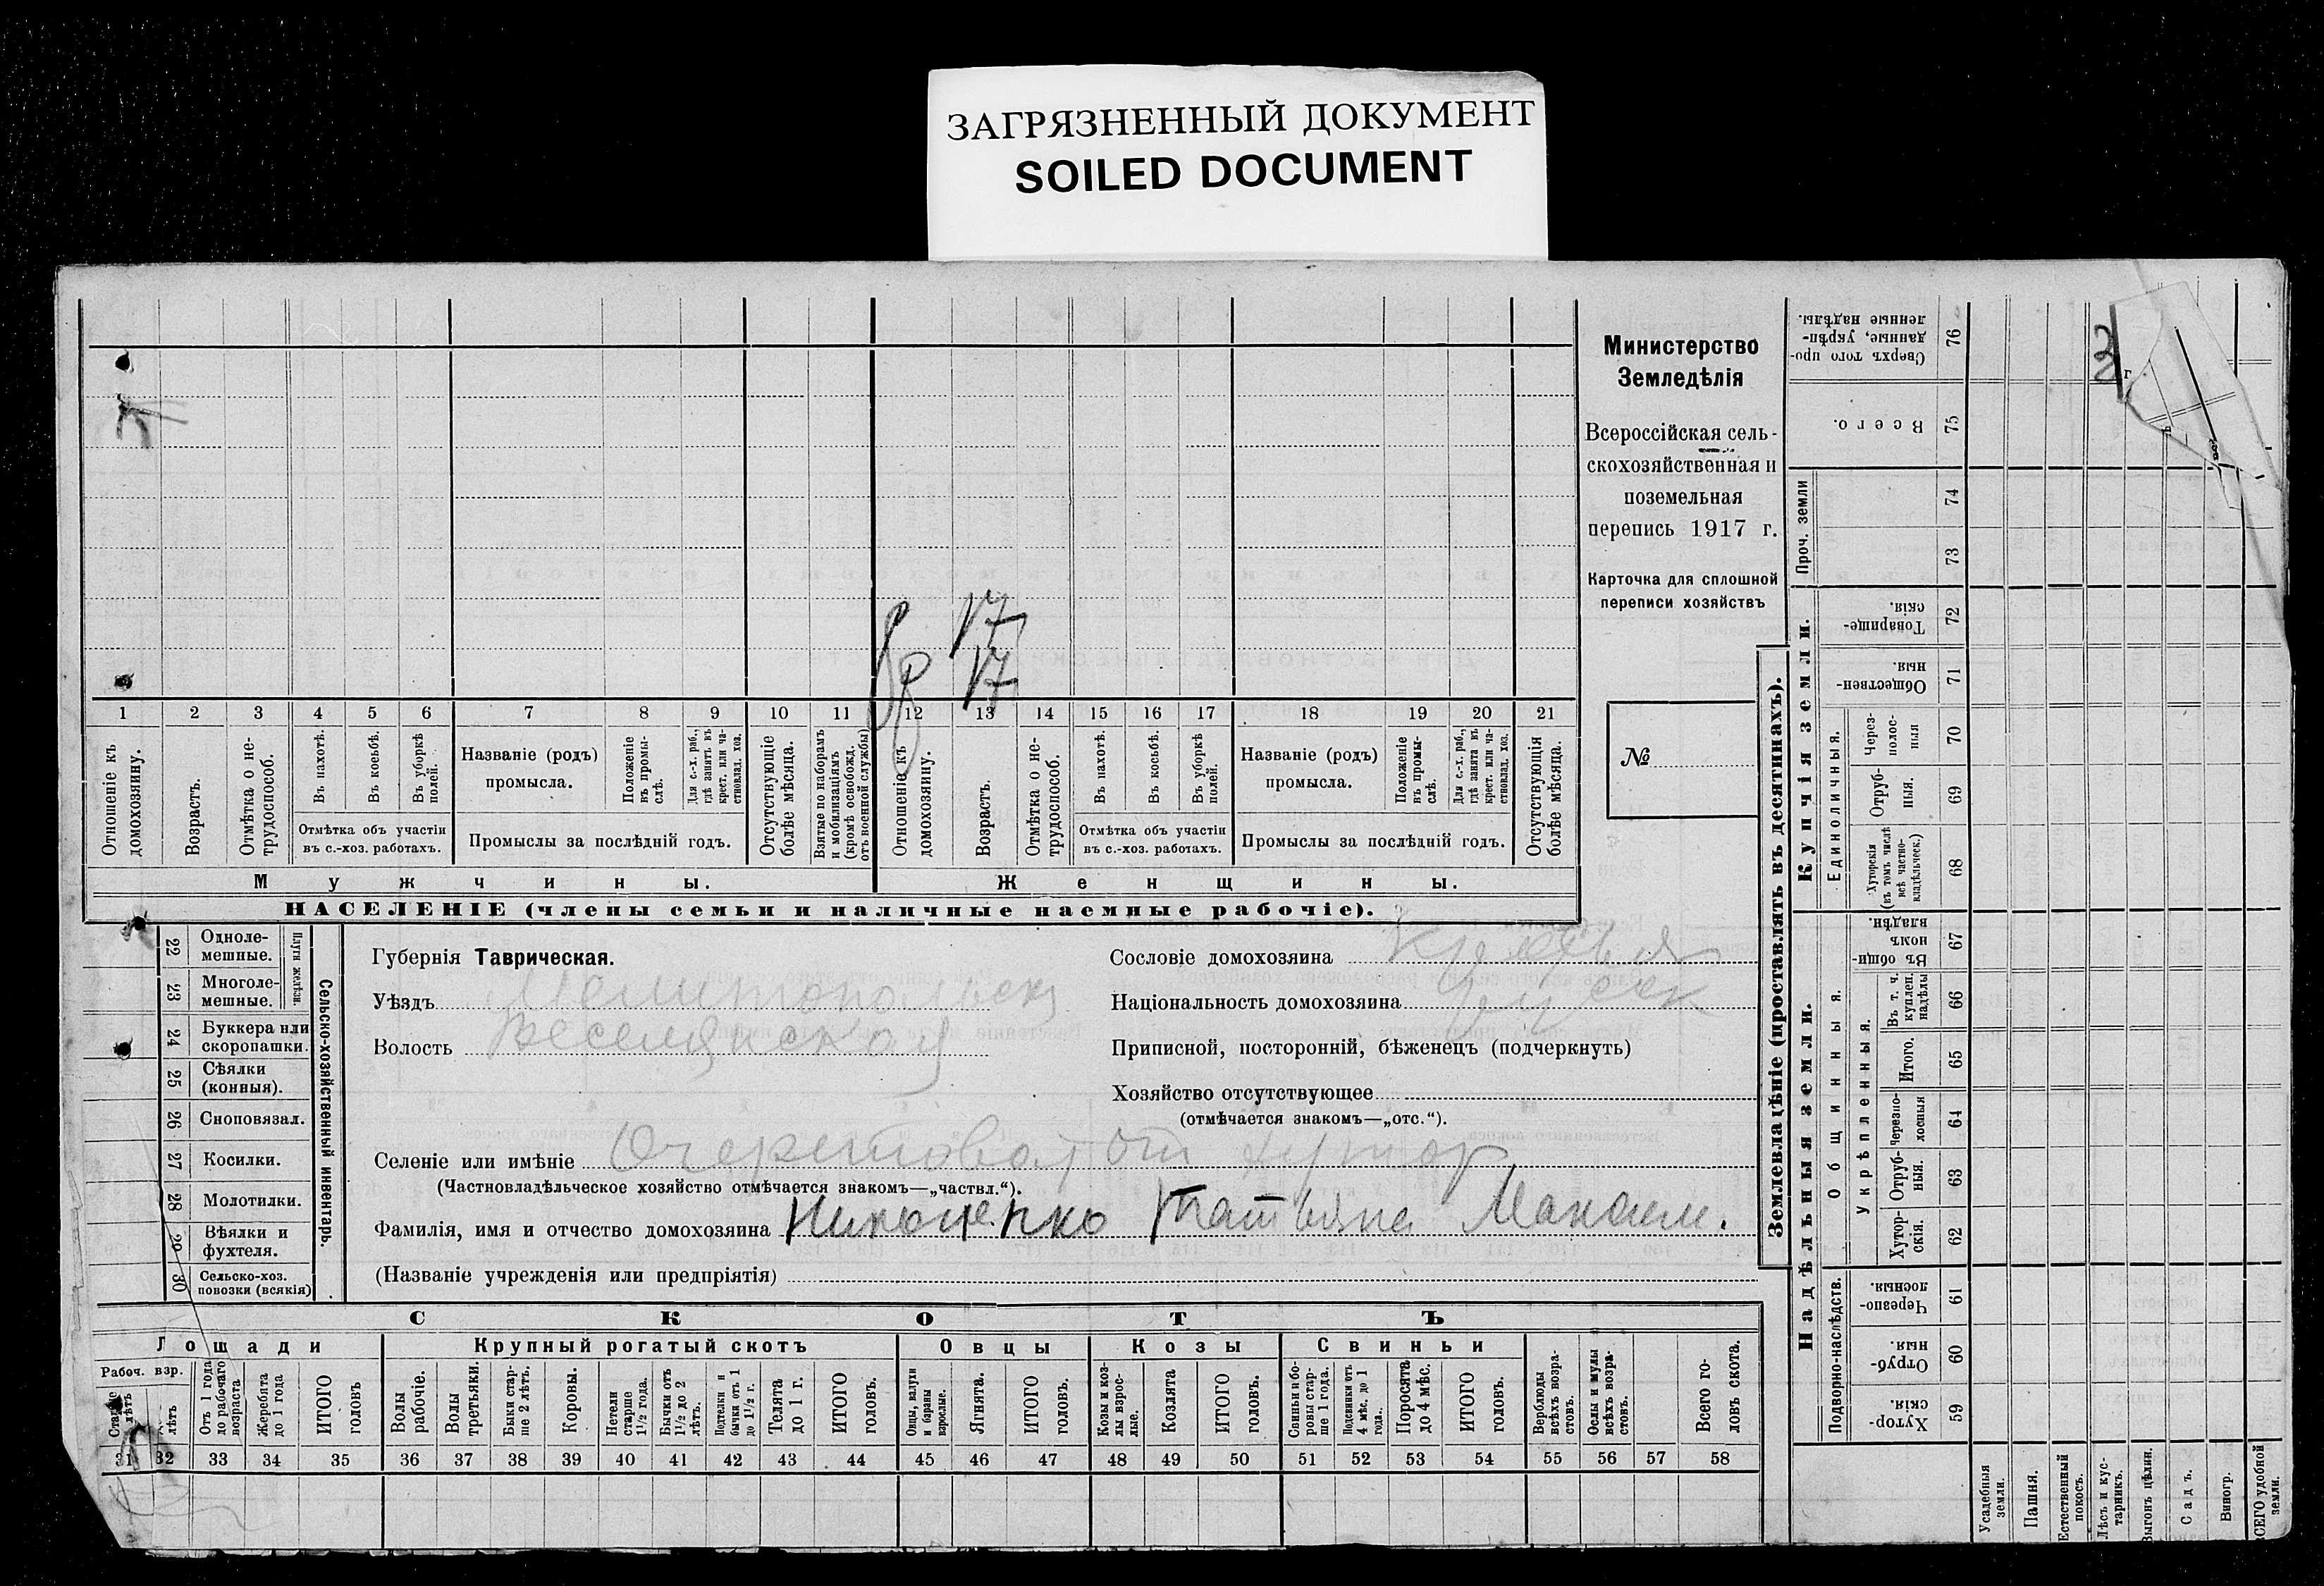 ЗАГРЯЗНЕННЫЙ ДОКУМЕНТ
SOILED DOCUMENT
Министерство
Земледѣлія
Всероссійская сель-
скохозяйственная и
поземельная
перепись 1917 г.
Карточка для сплошной
переписи хозяйствъ
№
17
17
1 2 3 4 5 6 7 8 9 10 11 12 13 14 15 16 17 18 19 20 21
Отношеніе къ домохозяину.
Возрастъ.
Отмѣтка о не-трудоспособ.
Въ пахотѣ.
Въ косьбѣ.
Въ уборкѣ полей.
Отмѣтка объ участіи
въ с.-хоз. работахъ.
Названіе (родъ)
промысла.
Положеніе въ промы-слѣ.
Для с.-х. раб., гдѣ занятъ въ крест. или ча-стновлад. хоз.
Промыслы за послѣдній годъ.
Отсутствующіе болѣе мѣсяца.
Взятые по наборамъ и мобилизаціямъ (кромѣ освобожд. отъ военной службы)
Отношеніе къ домохозяину.
Возрастъ.
Отмѣтка о не-трудоспособ.
Въ пахотѣ.
Въ косьбѣ.
Въ уборкѣ полей.
Отмѣтка объ участіи
въ с.-хоз. работахъ.
Названіе (родъ)
промысла.
Положеніе въ промы-слѣ.
Для с.-х. раб., гдѣ занята въ крест. или ча-стновлад. хоз.
Промыслы за послѣдній годъ.
Отсутствующія болѣе мѣсяца.
Мужчины.
Женщины.
НАСЕЛЕНІЕ (члены семьи и наличные наемные рабочіе).
22 Одноле-мешные.
23 Многоле-мешные.
Плуги желѣзн.
24 Буккера или скоропашки.
25 Сѣялки (конныя).
26 Сноповязал.
27 Косилки.
28 Молотилки.
29 Вѣялки и фухтеля.
30 Сельско-хоз. повозки (всякія)
Сельско-хозяйственный инвентарь.
Губернія Таврическая.
Уѣздъ Мелитопольск
Волость Веселянская
Сословіе домохозяина крестья
Национальность домохозяина русск
Приписной, посторонній, бѣженецъ (подчеркнуть)
Хозяйство отсутствующее
(отмѣчается знакомъ—„отс.“).
Селеніе или имѣніе Очеретоват хутор
(Частновладѣльческое хозяйство отмѣчается знакомъ—„частвл.“).
Фамилія, имя и отчество домохозяина Татьяна Максим.
(Названіе учрежденія или предпріятія)
СКОТЪ
Лошади
Крупный рогатый скотъ
Овцы
Козы
Свиньи
Рабоч. взр.
лѣтъ
лѣтъ
Отъ 1 года до рабочаго возраста
Жеребята до 1 года
ИТОГО головъ
Волы рабочіе.
Волы третьяки.
Быки стар-ше 2 лѣтъ.
Коровы.
Нетели старше 1½ года.
Бычки отъ 1½ до 2 лѣтъ.
Подтелки и бычки отъ 1 до 1½ г.
Телята до 1 г.
ИТОГО головъ.
Овцы, валухи и бараны взрослые.
Ягнята.
ИТОГО головъ.
Козы и коз-лы взрос-лые.
Козлята
ИТОГО головъ.
Свиньи и бо-ровы стар-ше 1 года.
Подсвинки отъ 4 мѣс. до 1 года.
Поросята до 4 мѣс.
ИТОГО головъ.
Верблюды всѣхъ возра-стовъ.
Ослы и мулы всѣхъ возра-стовъ.
Всего го-ловъ скота.
31 32 33 34 35 36 37 38 39 40 41 42 43 44 45 46 47 48 49 50 51 52 53 54 55 56 57 58
Землевладѣніе (проставлять въ десятинахъ).
Купчія земли.
Надѣльныя земли.
Сверхъ того про-данные, укрѣп-ленные надѣлы. 76
Всего. 75
Проч. земли
74
73
Товарище-скія. 72
Обществен-ныя. 71
Единоличныя.
Через-полос-ныя 70
Отруб-ныя. 69
Хуторскія (въ томъ числѣ всѣ частно-владѣльческ.) 68
Общинныя.
Въ общи-номъ владѣн. 67
Укрѣпленныя.
Въ т. ч. куплен. надѣлы 66
Итого. 65
Черезпо-лосныя 64
Отруб-ныя. 63
Хутор-скія. 62
Подворно-наслѣдств.
Черезпо-лосныя. 61
Отруб-ныя. 60
Хутор-скія. 59
Усадебныя земли.
Пашня.
Естественный покосъ.
Лѣсъ и кус-тарникъ.
Выгонъ цѣлин.
Садъ.
Виногр.
ВСЕГО удобной земли.